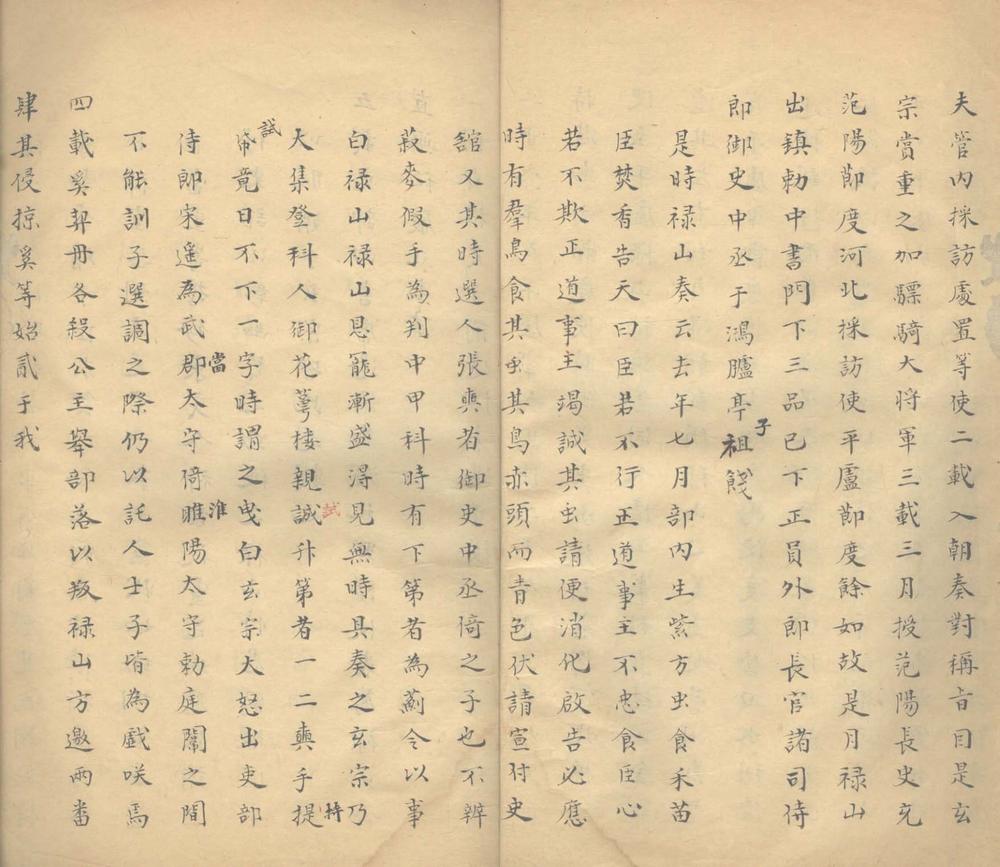 夫管内採訪處置等使二載入朝奏對稱旨自是玄
宗賞重之加驃騎大将軍三載三月授范陽長史充
范陽節度河北採訪使平盧節度餘如故是月禄山
出鎮勅中書門下三品已下正員外郎長官諸司侍
郎御史中丞于鴻臚亭子祖餞
是時禄山奏云去年七月部内生紫方虫食禾苗
臣焚香告天曰臣若不行正道事主不忠食臣心
若不欺正道事主竭誠其虫請便消化啟告必應
時有羣鳥食其虫其鳥赤頭而青色伏請宣付史
舘又其時選人張奭者御史中丞倚之子也不辨
菽麥假手為判中甲科時有下第者為薊令以事
白禄山禄山恩寵漸盛得見無時具奏之玄宗乃
大集登科人御花萼樓親誠試升第者一二奭手提持
試帋竟日不下一字時謂之曳白玄宗大怒出吏部
侍郎宋遥為武郡當太守倚睢淮陽太守勅庭闈之間
不能訓子選調之際仍以託人士子皆為戲咲焉
四載奚契丹各殺公主舉部落以叛禄山方邀兩畨
肆其侵掠奚等始貳于我